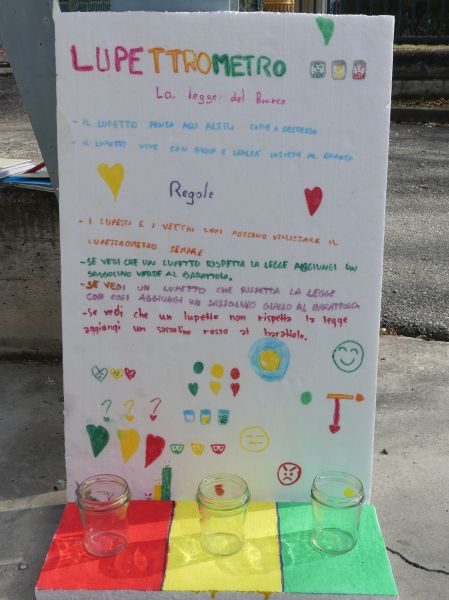 LUPETTROMETRO
La legge del Branco
- IL LUPETTO PENSA AGLI ALTRI COME A SE STESSO
- IL LUPETTO VIVE CON GIOIA E LEALTÀ INSIEME AL BRANCO
Regole
- I LUPETTI E I VECCHI LUPI POSSONO UTILIZZARE IL
LUPETTROMETRO SEMPRE
- SE VEDI CHE UN LUPETTO RISPETTA LA LEGGE AGGIUNGI UN
SASSOLINO VERDE AL BARATTOLO.
- SE VEDI UN LUPETTO CHE RISPETTA LA LEGGE
COSÌ COSÌ AGGIUNGI UN SASSOLINO GIALLO AL BARATTOLO
- Se vedi che un lupetto non rispetta la legge
aggiungi un sassolino rosso al barattolo.
? ? ?